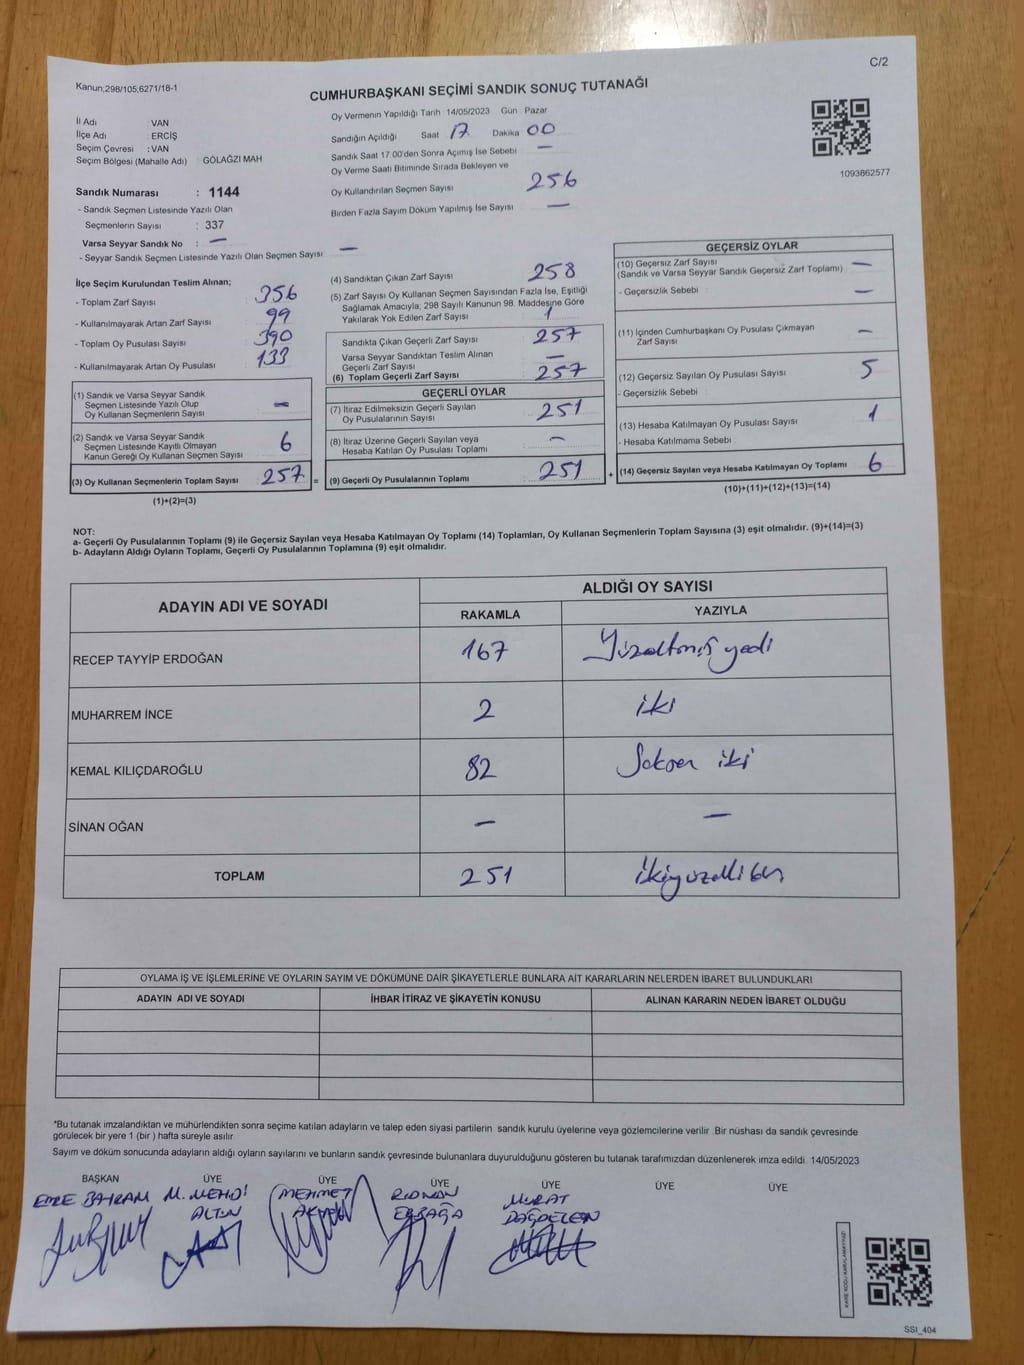 C/2
Kanun;298/105;6271/18-1
CUMHURBAŞKANI SEÇİMİ SANDIK SONUÇ TUTANAĞI
İl Adı : VAN
İlçe Adı : ERCİŞ
Seçim Çevresi : VAN
Seçim Bölgesi (Mahalle Adı) : GÖLAĞZI MAH
Sandık Numarası : 1144
- Sandık Seçmen Listesinde Yazılı Olan
Seçmenlerin Sayısı : 337
Varsa Seyyar Sandık No : —
- Seyyar Sandık Seçmen Listesinde Yazılı Olan Seçmen Sayısı : —
Oy Vermenin Yapıldığı Tarih 14/05/2023 Gün : Pazar
Sandığın Açıldığı Saat 17 Dakika 00
Sandık Saat 17:00'den Sonra Açımış İse Sebebi —
Oy Verme Saati Bitiminde Sırada Bekleyen ve
Oy Kullandırılan Seçmen Sayısı 256
Birden Fazla Sayım Döküm Yapılmış İse Sayısı —
1093862577
İlçe Seçim Kurulundan Teslim Alınan;
- Toplam Zarf Sayısı 356
- Kullanılmayarak Artan Zarf Sayısı 99
- Toplam Oy Pusulası Sayısı 390
- Kullanılmayarak Artan Oy Pusulası 133
(1) Sandık ve Varsa Seyyar Sandık
Seçmen Listesinde Yazılı Olup
Oy Kullanan Seçmenlerin Sayısı —
(2) Sandık ve Varsa Seyyar Sandık
Seçmen Listesinde Kayıtlı Olmayan
Kanun Gereği Oy Kullanan Seçmen Sayısı 6
(3) Oy Kullanan Seçmenlerin Toplam Sayısı 257 =
(1)+(2)=(3)
(4) Sandıktan Çıkan Zarf Sayısı 258
(5) Zarf Sayısı Oy Kullanan Seçmen Sayısından Fazla İse, Eşitliği
Sağlamak Amacıyla, 298 Sayılı Kanunun 98. Maddesine Göre
Yakılarak Yok Edilen Zarf Sayısı 1
Sandıkta Çıkan Geçerli Zarf Sayısı 257
Varsa Seyyar Sandıktan Teslim Alınan
Geçerli Zarf Sayısı —
(6) Toplam Geçerli Zarf Sayısı 257
GEÇERLİ OYLAR
(7) İtiraz Edilmeksizin Geçerli Sayılan
Oy Pusulalarının Sayısı 251
(8) İtiraz Üzerine Geçerli Sayılan veya
Hesaba Katılan Oy Pusulası Toplamı —
(9) Geçerli Oy Pusulalarının Toplamı 251 +
GEÇERSİZ OYLAR
(10) Geçersiz Zarf Sayısı —
(Sandık ve Varsa Seyyar Sandık Geçersiz Zarf Toplamı)
- Geçersizlik Sebebi : —
(11) İçinden Cumhurbaşkanı Oy Pusulası Çıkmayan
Zarf Sayısı —
(12) Geçersiz Sayılan Oy Pusulası Sayısı 5
- Geçersizlik Sebebi :
(13) Hesaba Katılmayan Oy Pusulası Sayısı 1
- Hesaba Katılmama Sebebi :
(14) Geçersiz Sayılan veya Hesaba Katılmayan Oy Toplamı 6
(10)+(11)+(12)+(13)=(14)
NOT:
a- Geçerli Oy Pusulalarının Toplamı (9) ile Geçersiz Sayılan veya Hesaba Katılmayan Oy Toplamı (14) Toplamları, Oy Kullanan Seçmenlerin Toplam Sayısına (3) eşit olmalıdır. (9)+(14)=(3)
b- Adayların Aldığı Oyların Toplamı, Geçerli Oy Pusulalarının Toplamına (9) eşit olmalıdır.
ADAYIN ADI VE SOYADI
ALDIĞI OY SAYISI
RAKAMLA YAZIYLA
RECEP TAYYİP ERDOĞAN 167 Yüzaltmış yedi
MUHARREM İNCE 2 iki
KEMAL KILIÇDAROĞLU 82 Seksen iki
SİNAN OĞAN — —
TOPLAM 251 ikiyüzelli bir
OYLAMA İŞ VE İŞLEMLERİNE VE OYLARIN SAYIM VE DÖKÜMÜNE DAİR ŞİKAYETLERLE BUNLARA AİT KARARLARIN NELERDEN İBARET BULUNDUKLARI
ADAYIN ADI VE SOYADI İHBAR İTİRAZ VE ŞİKAYETİN KONUSU ALINAN KARARIN NEDEN İBARET OLDUĞU
*Bu tutanak imzalandıktan ve mühürlendikten sonra seçime katılan adayların ve talep eden siyasi partilerin sandık kurulu üyelerine veya gözlemcilerine verilir. Bir nüshası da sandık çevresinde
görülecek bir yere 1 (bir ) hafta süreyle asılır.
Sayım ve döküm sonucunda adayların aldığı oyların sayılarını ve bunların sandık çevresinde bulunanlara duyurulduğunu gösteren bu tutanak tarafımızdan düzenlenerek imza edildi. 14/05/2023
BAŞKAN ÜYE ÜYE ÜYE ÜYE ÜYE ÜYE
EMRE BAYRAM M. MEHDİ MEHMET RIDVAN MURAT
ALTUN DAĞDELEN
KARE KODU KARALAMAYINIZ!
SSİ_404